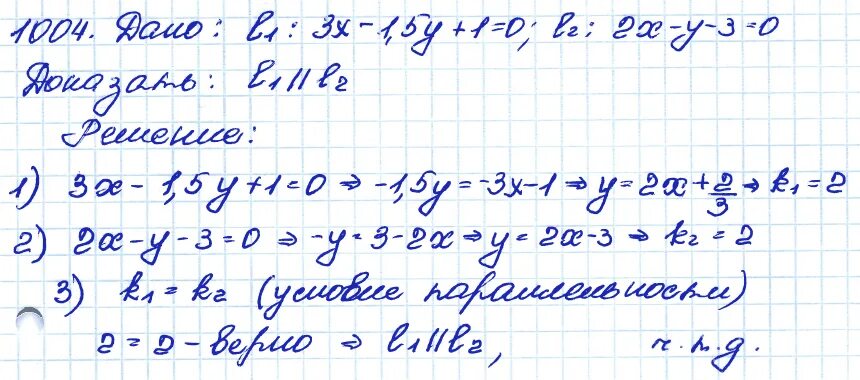 1004. Дано: l₁: 3x-1,5y+1=0; l₂: 2x-y-3=0
Доказать: l₁ || l₂
Решение:
1) 3x-1,5y+1=0 ⇒ -1,5y=-3x-1 ⇒ y=2x+2/3 ⇒ k₁=2
2) 2x-y-3=0 ⇒ -y=3-2x ⇒ y=2x-3 ⇒ k₂=2
3) k₁=k₂ (условие параллельности)
2=2-верно ⇒ l₁ || l₂, ч.т.д.